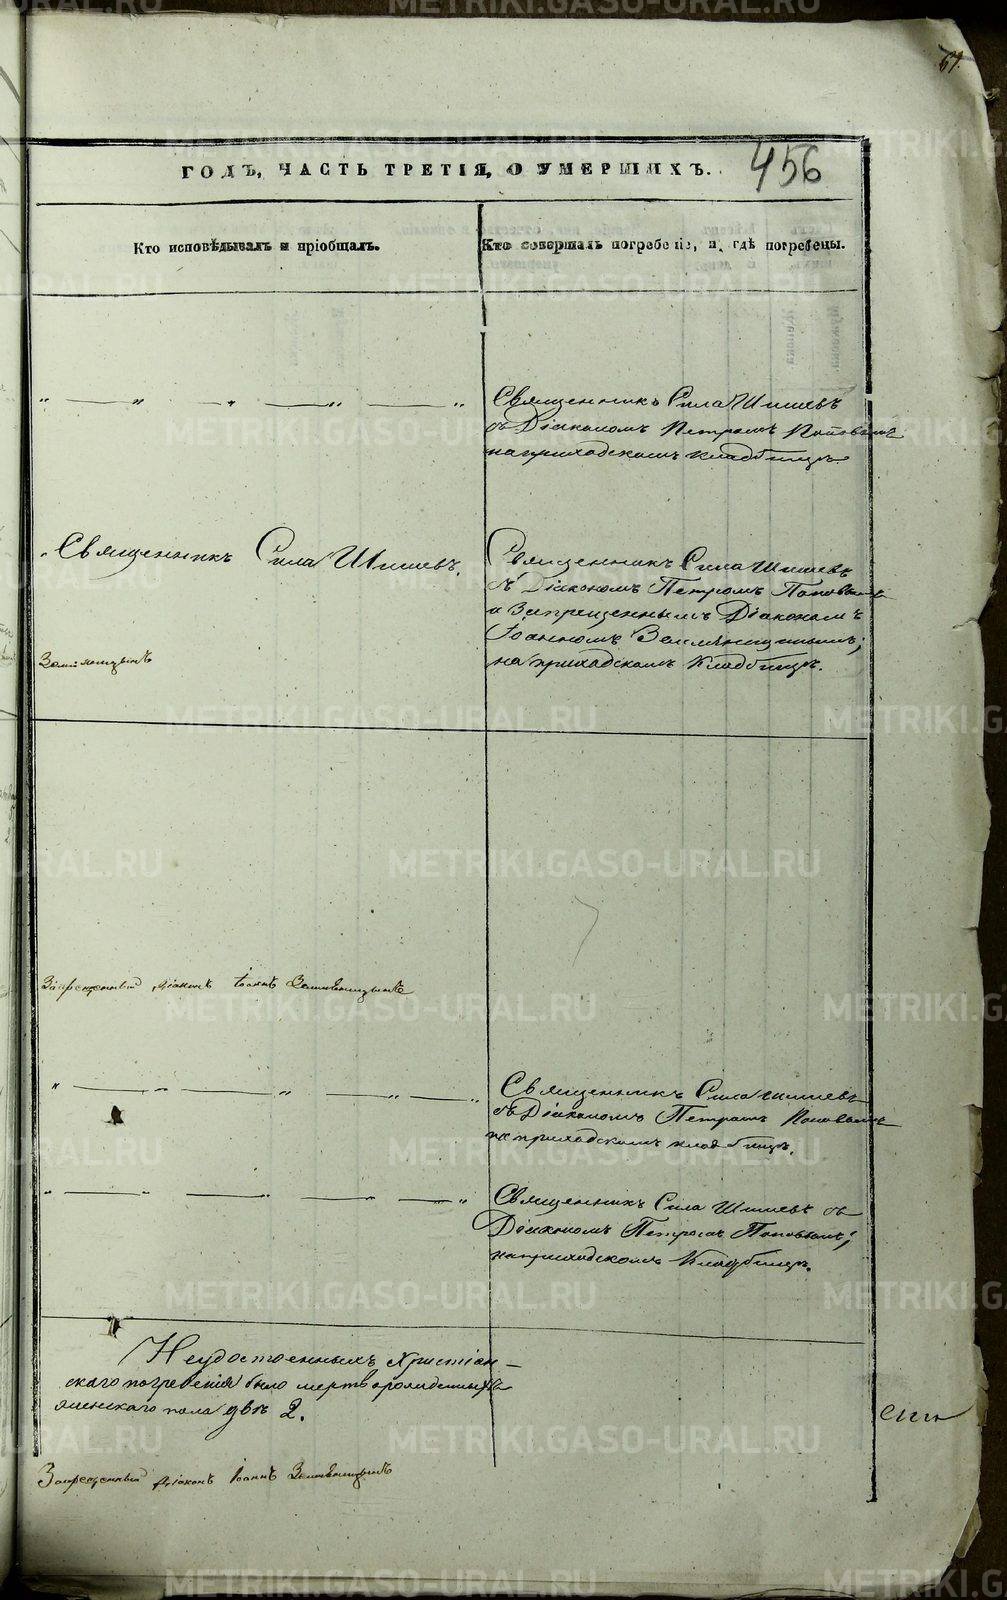 61.
ГОДЪ, ЧАСТЬ ТРЕТІЯ, О УМЕРШИХЪ.
456
Кто исповѣдывалъ и пріобщалъ.
Кто совершалъ погребеніе, и гдѣ погребены.
Священникъ Сила Шишевъ
съ Діакономъ Петромъ Поповымъ
на приходскомъ кладбищѣ.
Священникъ Сила Шишевъ.
Священникъ Сила Шишевъ
съ Діакономъ Петромъ Поповымъ
и Запрещеннымъ Діакономъ
Іоанномъ Земляницынымъ;
на приходскомъ Кладбищѣ.
Земляницынъ
Запрещенный діаконъ Іоаннъ Земляницынъ
Священникъ Сила Шишевъ
съ Діакономъ Петромъ Поповымъ
на приходскомъ кладбищѣ.
Священникъ Сила Шишевъ съ
Діакономъ Петромъ Поповымъ;
на приходскомъ Кладбищѣ.
Неудостоенныхъ Христіан-
скаго погребенія было мертворожденныхъ
женскаго пола двѣ 2.
Запрещенный діаконъ Іоаннъ Земляницынъ
METRIKI.GASO-URAL.RU